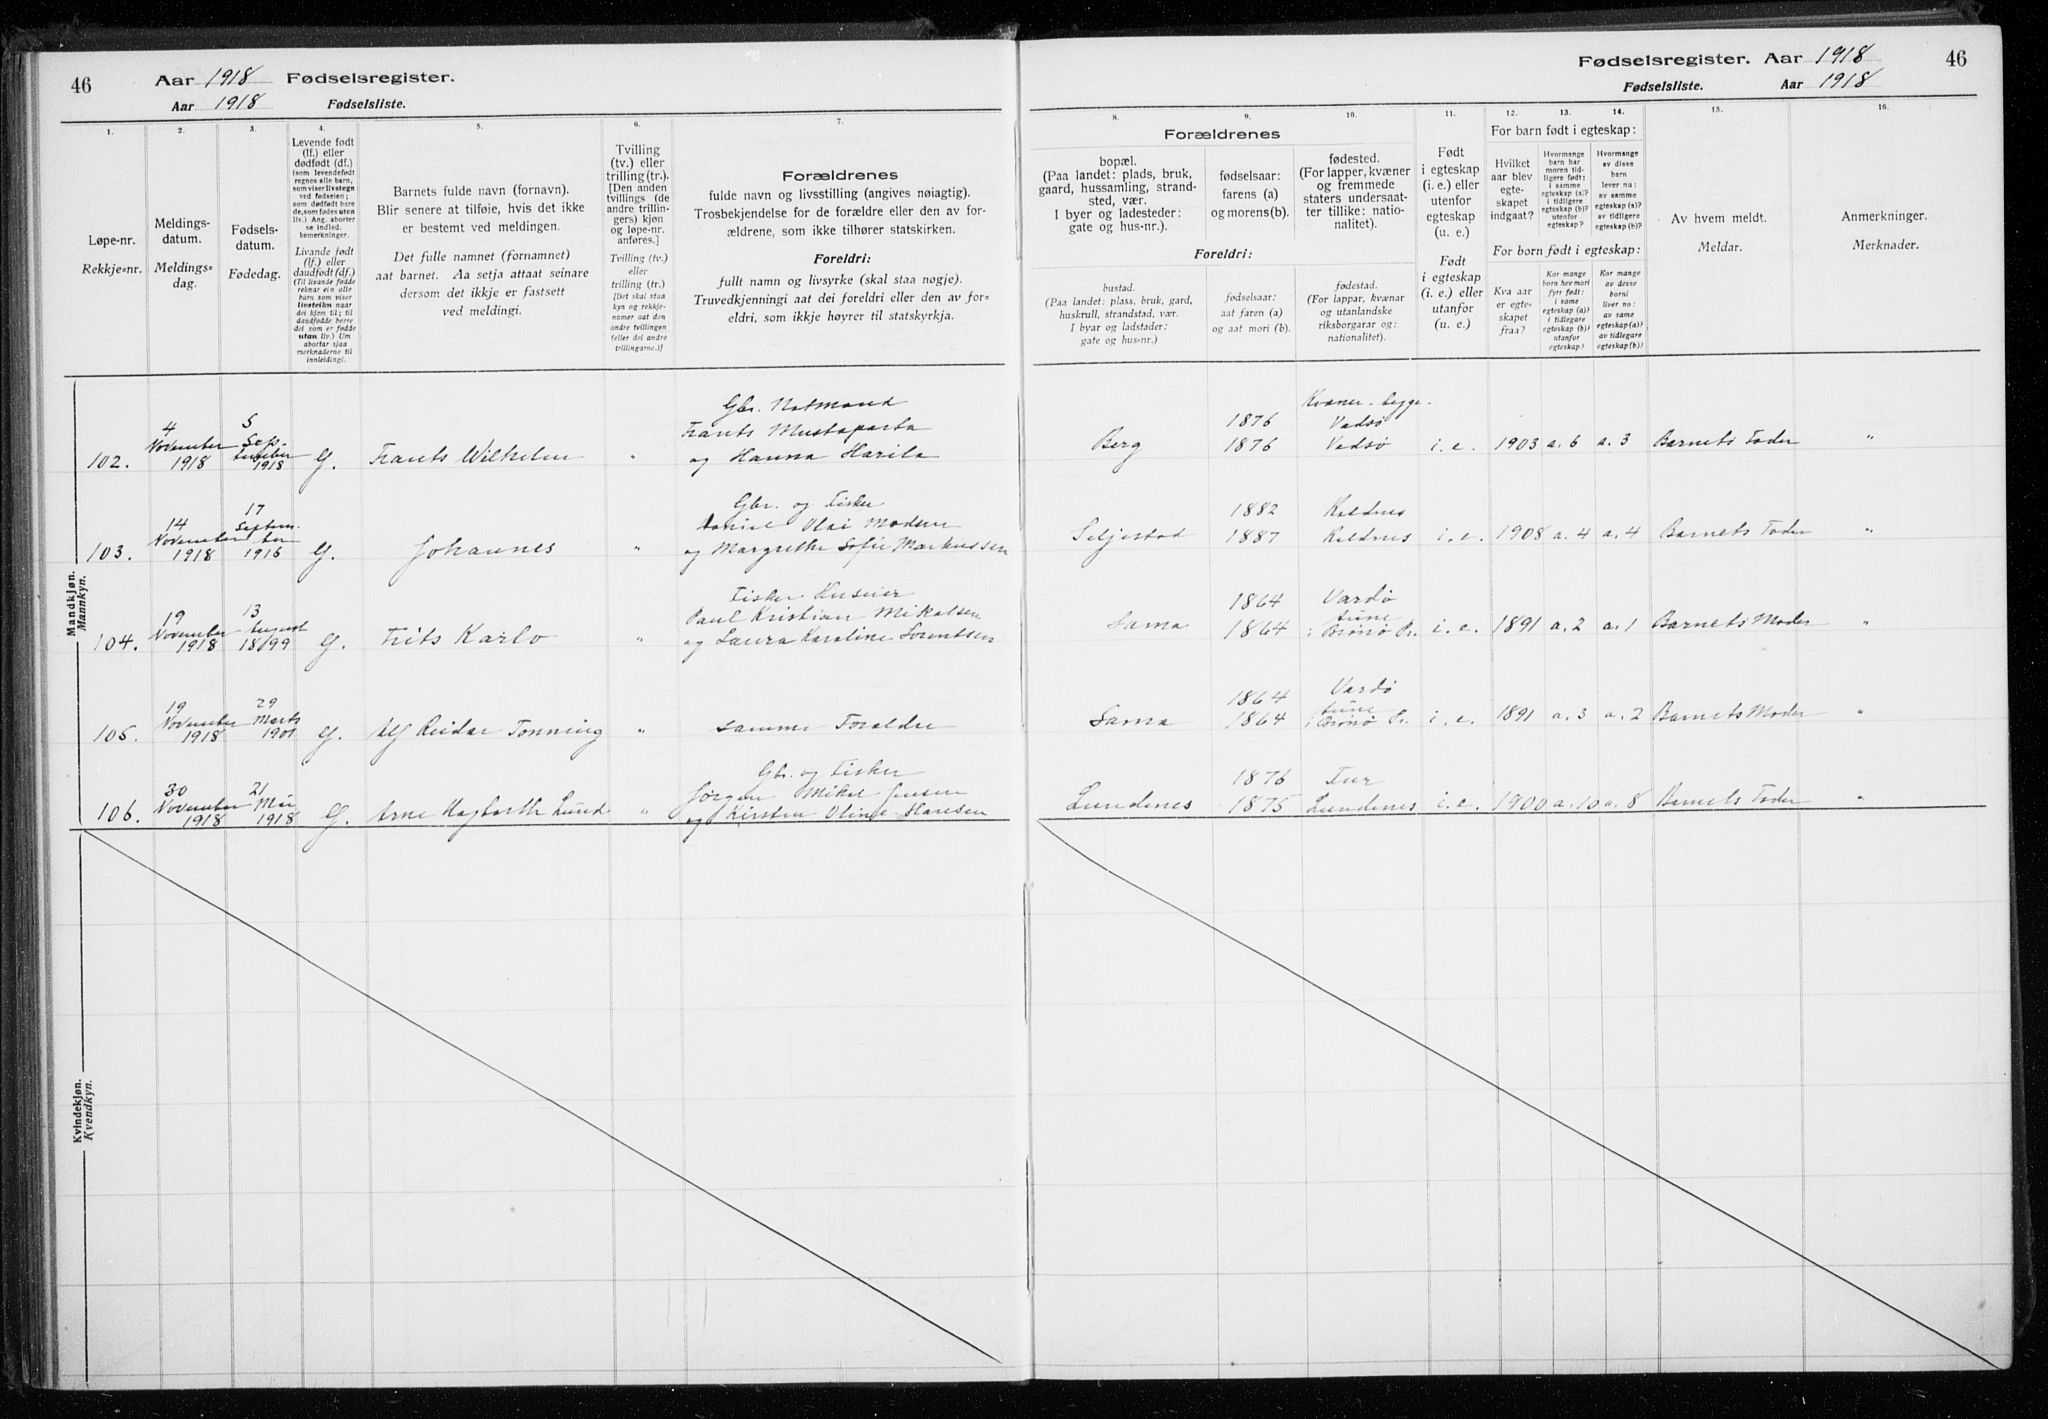 46 Aar 1918 Fødselsregister.
Aar 1918 Fødselsliste.
Fødselsregister. Aar 1918 46
Fødselsliste. Aar 1918
1.
Løpe-nr.
Rekkje=nr.
2.
Meldings-
datum.
Meldings=
dag.
3.
Fødsels-
datum.
Fødedag.
4.
Levende født
(lf.) eller
dødfødt (df.)
(som levendefødt
regnes alle barn,
som viser livstegn
ved fødselen;
som dødfødt bare
de, som fødes uten
liv.) Ang. aborter
se indled.
bemerkninger.
Livande født
(lf.) eller
daudfødt (df.)
(Til livande fødde
reknar ein alle
barn som viser
livsteikn naar
dei kjem til; til
daudfødde berre
dei som er fødde
utan liv.) Um
abortar sjaa
merknaderne til
innleiding!
5.
Barnets fulde navn (fornavn).
Blir senere at tilføie, hvis det ikke
er bestemt ved meldingen.
Det fulle namnet (fornamnet)
aat barnet. Aa setja attaat seinare
dersom det ikkje er fastsett
ved meldingi.
6.
Tvilling
(tv.) eller
trilling (tr.).
[Den anden
tvillings (de
andre trillin-
gers) kjøn
og løpe-nr.
anføres.]
Tvilling (tv.)
eller
trilling (tr.)
[Det skal staa
kyn og rekkje-
numer aat den
andre tvillingen
(eller dei andre
trillingarne.)]
7.
Forældrenes
fulde navn og livsstilling (angives nøiagtig).
Trosbekjendelse for de forældre eller den av for-
ældrene, som ikke tilhører statskirken.
Foreldri:
fullt namn og livsyrke (skal staa nøgje).
Truvedkjenningi aat dei foreldri eller den av for=
eldri, som ikkje høyrer til statskyrkja.
Forældrenes
8.
bopæl.
(Paa landet: plads, bruk,
gaard, hussamling, strand-
sted, vær.
I byer og ladesteder:
gate og hus-nr.).
9.
fødselsaar:
farens (a)
og morens(b).
10.
fødested.
(For lapper, kvæner
og fremmede
staters undersaat-
ter tillike: natio-
nalitet).
Foreldri:
bustad.
(Paa landet: plass, bruk, gard,
huskrull, strandstad, vær.
I byar og ladstader:
gate og hus=nr.)
fødselsaar:
aat faren (a)
og aat mori (b).
fødestad.
(For lappar, kvænar
og utanlandske
riksborgarar og:
nationalitet).
11.
Født
i egteskap
(i. e.) eller
utenfor
egteskap
(u. e.)
Født
i egteskap
(i. e.) eller
utanfor
(u. e.)
12. 13. 14.
For barn født i egteskap:
Hvilket
aar blev
egte-
skapet
indgaat?
Hvormange
barn har
moren tid-
ligere født:
i samme
egteskap (a)?
i tidligere
egteskap (b)?
utenfor
egteskap?
Hvormange
av disse
barn
lever nu:
av samme
egteskap (a)?
av tidligere
egteskap (b)?
For born født i egteskap:
Kva aar
er egte-
skapet
fraa?
Kor mange
born hev mori
fyrr født:
i same
egteskap (a)?
i tidlegare
egteskap (b)?
utanfor
egteskap?
Kor mange
av desse
borni
liver no:
av same
egteskap (a)?
av tidlegare
egteskap (b)?
15.
Av hvem meldt.
Meldar.
16.
Anmerkninger.
Merknader.
Mandkjøn.
Mannkyn.
102. 4 November 1918 5 September 1918 Frants Wilhelm " Gbr. Notmand
Frants Mustaparta
og Hanna Harila Berg 1876 1876 Kvæner begge. Vadsø Vadsø i. e. 1903 a. 6 a. 3 Barnets Fader "
103. 14 November 1918 17 September 1916 Johannes " Gbr. og Fisker
Daniel Olai Madsen
og Margrethe Sofie Markussen Seljestad 1882 1887 Keldnes Keldnes i. e. 1908 a. 4 a. 4 Barnets Fader "
104. 19 November 1918 13 August 1899 Frits Karlo " Fisker Huseier
Paul Kristian Mikalsen
og Laura Karoline Sorentsen Sama 1864 1864 Vardø i Brønø Pr. i. e. 1891 a. 2 a. 1 Barnets Moder "
105. 19 November 1918 29 Marts 1901 Alf Reidar Tonning " samme Foraldre Sama 1864 1864 Vardø i Brønø Pr. i. e. 1891 a. 3 a. 2 Barnets Moder "
106. 30 November 1918 21 Mai 1918 Arne Hagbarth Lund " Gbr. og Fisker
Jørgen Mikal Jensen
og Kirsten Oline Hansen Lundenes 1876 1875 Lundenes i. e. 1900 a. 10 a. 8 Barnets Fader "
Kvindekjøn.
Kvendkyn.